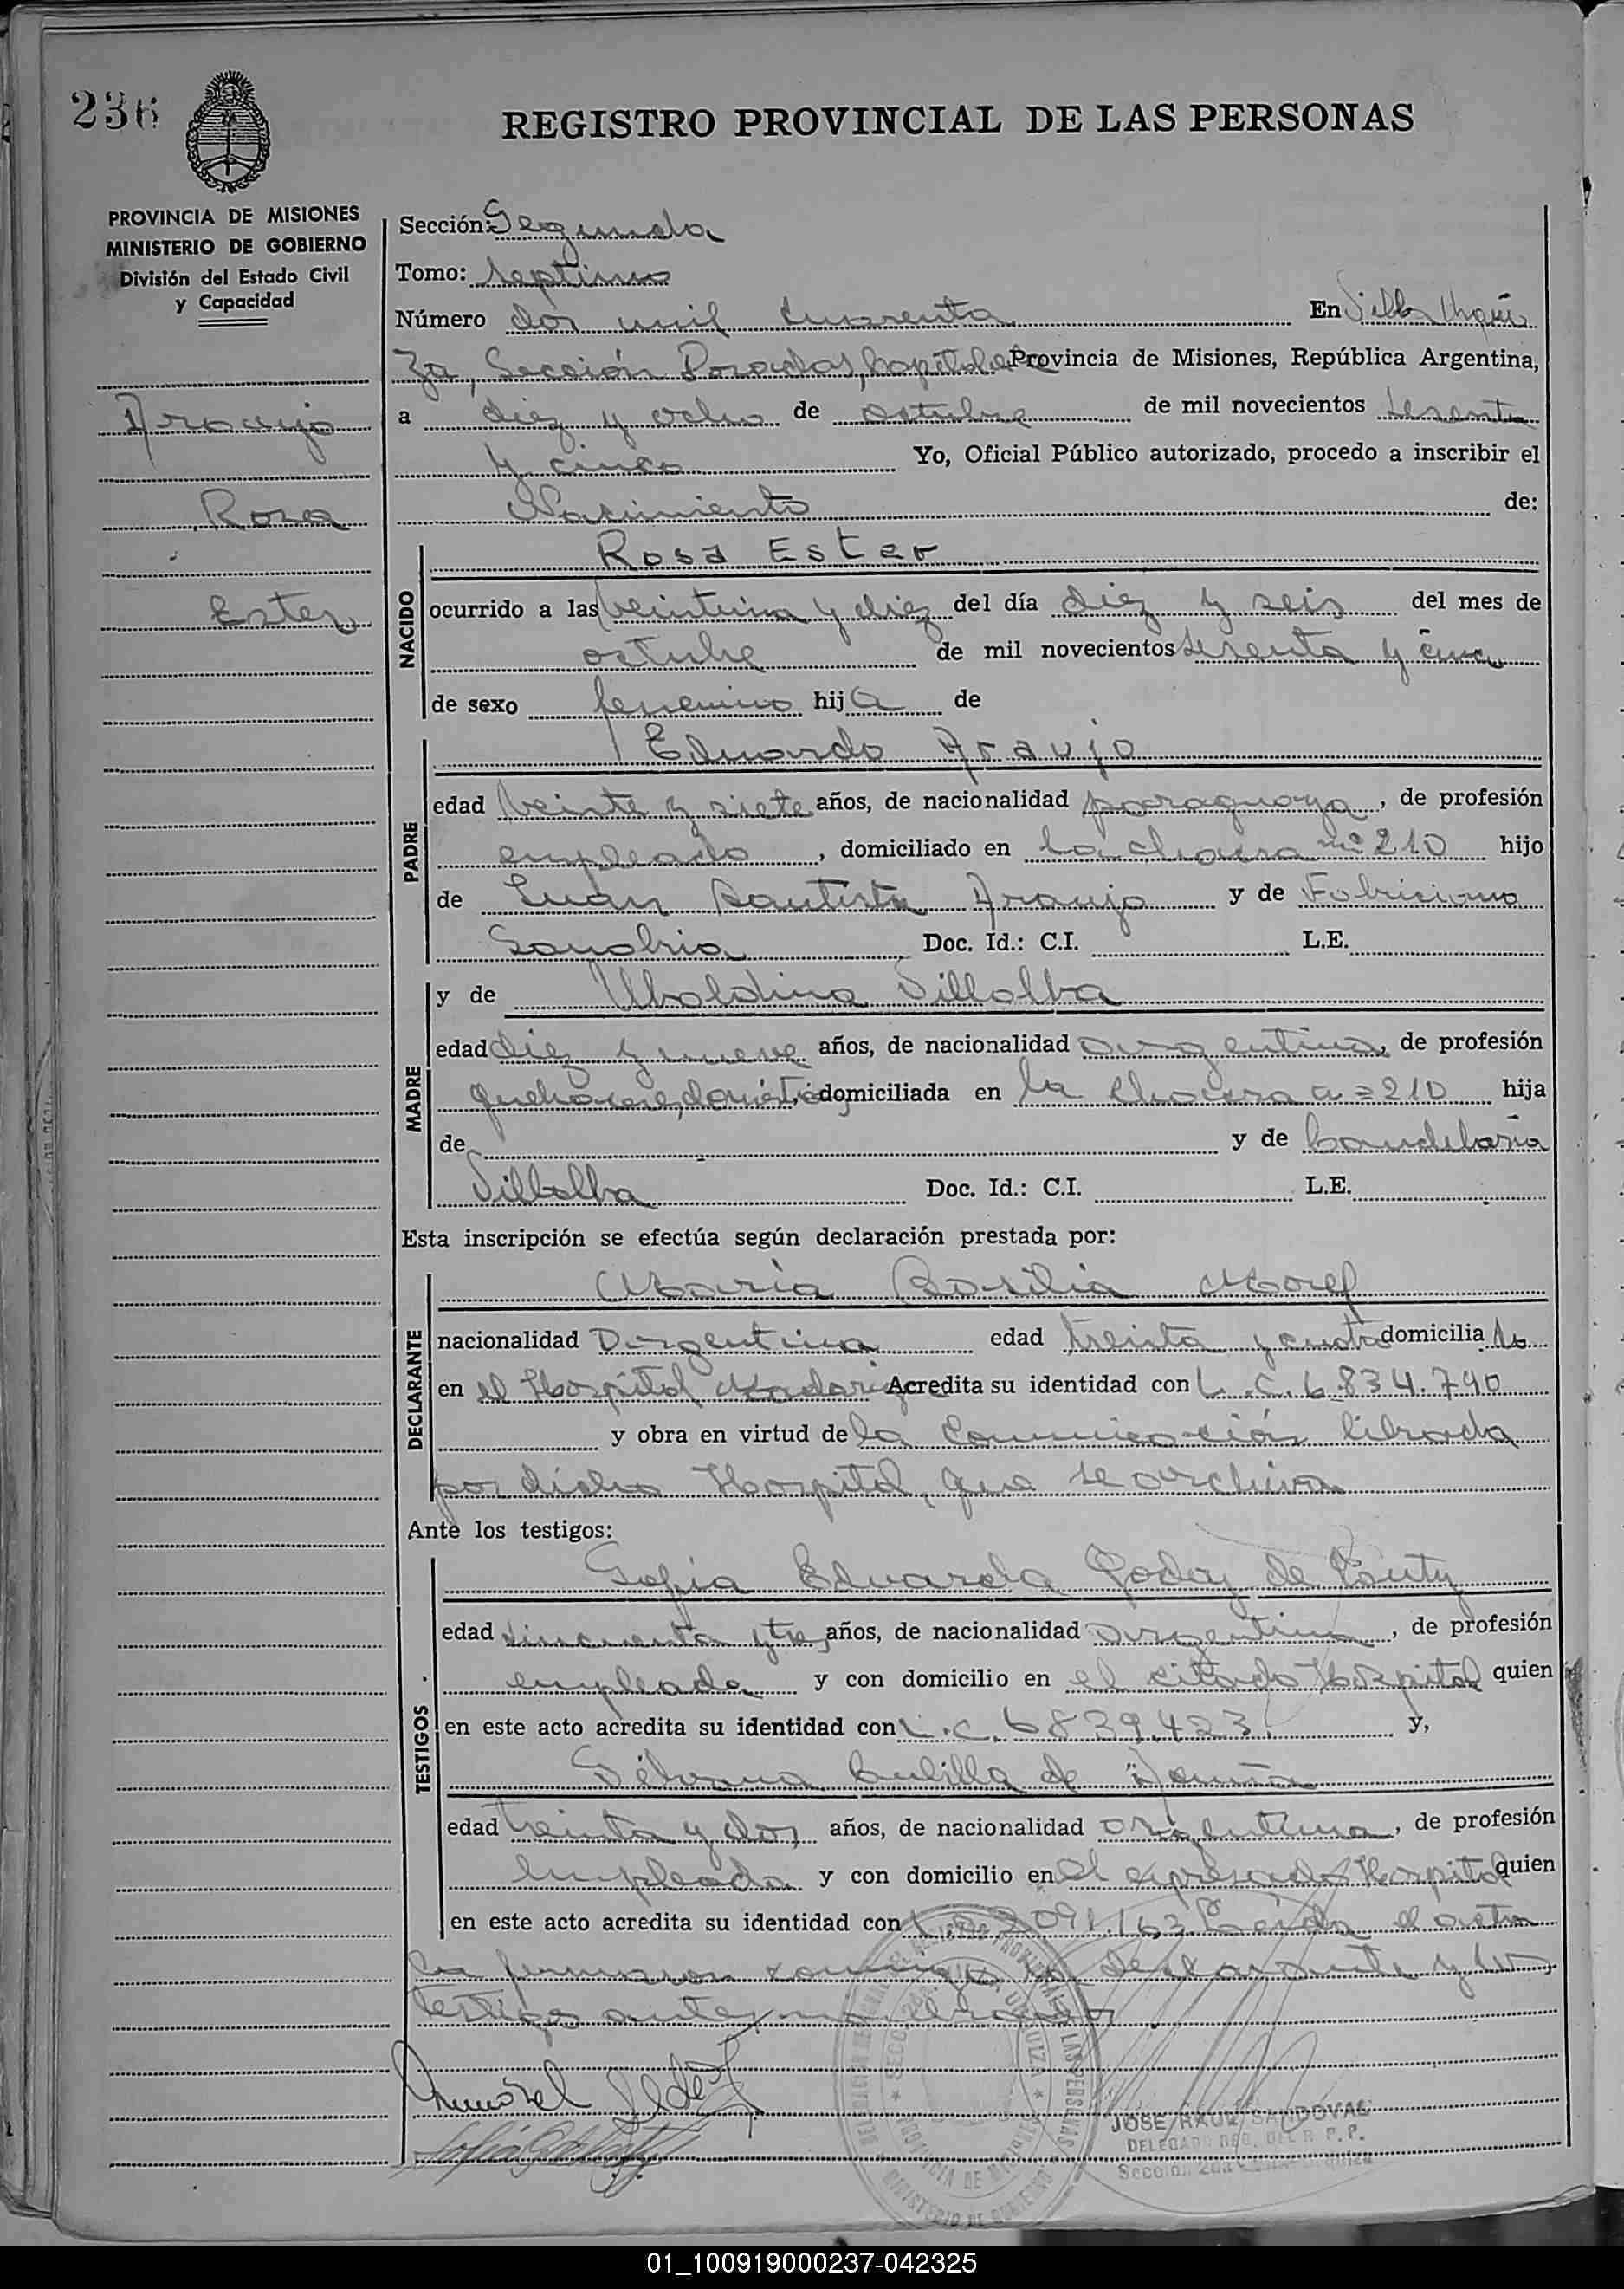 236
REGISTRO PROVINCIAL DE LAS PERSONAS
PROVINCIA DE MISIONES
MINISTERIO DE GOBIERNO
División del Estado Civil
y Capacidad
Araujo
Rosa
Ester
Sección: Segunda
Tomo: septimo
Número dos mil cuarenta En Villa Urquiz
Za, Sección Posadas, Capital Provincia de Misiones, República Argentina,
a diez y ocho de octubre de mil novecientos sesenta
y cinco Yo, Oficial Público autorizado, procedo a inscribir el
Nacimiento de:
NACIDO
Rosa Ester
ocurrido a las veintiuna y diez del día diez y seis del mes de
octubre de mil novecientos sesenta y cinco
de sexo femenino hija de
PADRE
Eduardo Araujo
edad veinte y siete años, de nacionalidad paraguaya, de profesión
empleado, domiciliado en la chacra nº 210 hijo
de Juan Bautista Araujo y de Fabriciana
Sanabria Doc. Id.: C.I. L.E.
MADRE
y de Ubaldina Villalba
edad diez y nueve años, de nacionalidad argentina, de profesión
domiciliada en la chacra nº 210 hija
de y de Candelaria
Villalba Doc. Id.: C.I. L.E.
Esta inscripción se efectúa según declaración prestada por:
DECLARANTE
María Basilia
nacionalidad argentina edad treinta y cuatro domicilia da
en el Hospital Madariaga Acredita su identidad con L.C. 6.834.790
y obra en virtud de la comunicación librada
por dicho Hospital, que se archiva
Ante los testigos:
TESTIGOS
Sofia Eduarda Godoy de
edad cincuenta y tres años, de nacionalidad argentina, de profesión
empleada y con domicilio en el citado Hospital quien
en este acto acredita su identidad con L.C. 6839.423. y,
de
edad treinta y dos años, de nacionalidad argentina, de profesión
empleada y con domicilio en el expresado Hospital quien
en este acto acredita su identidad con Leida el acta
la firmaron conmigo la declarante y los
testigos
JOSE RAUL SANDOVAL
DELEGADO DEL R. P. P.
01_100919000237-042325